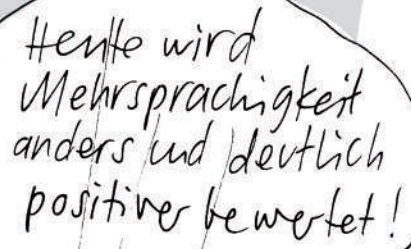 Heute wird
Mehrsprachigkeit
anders und deutlich
positiver bewertet!